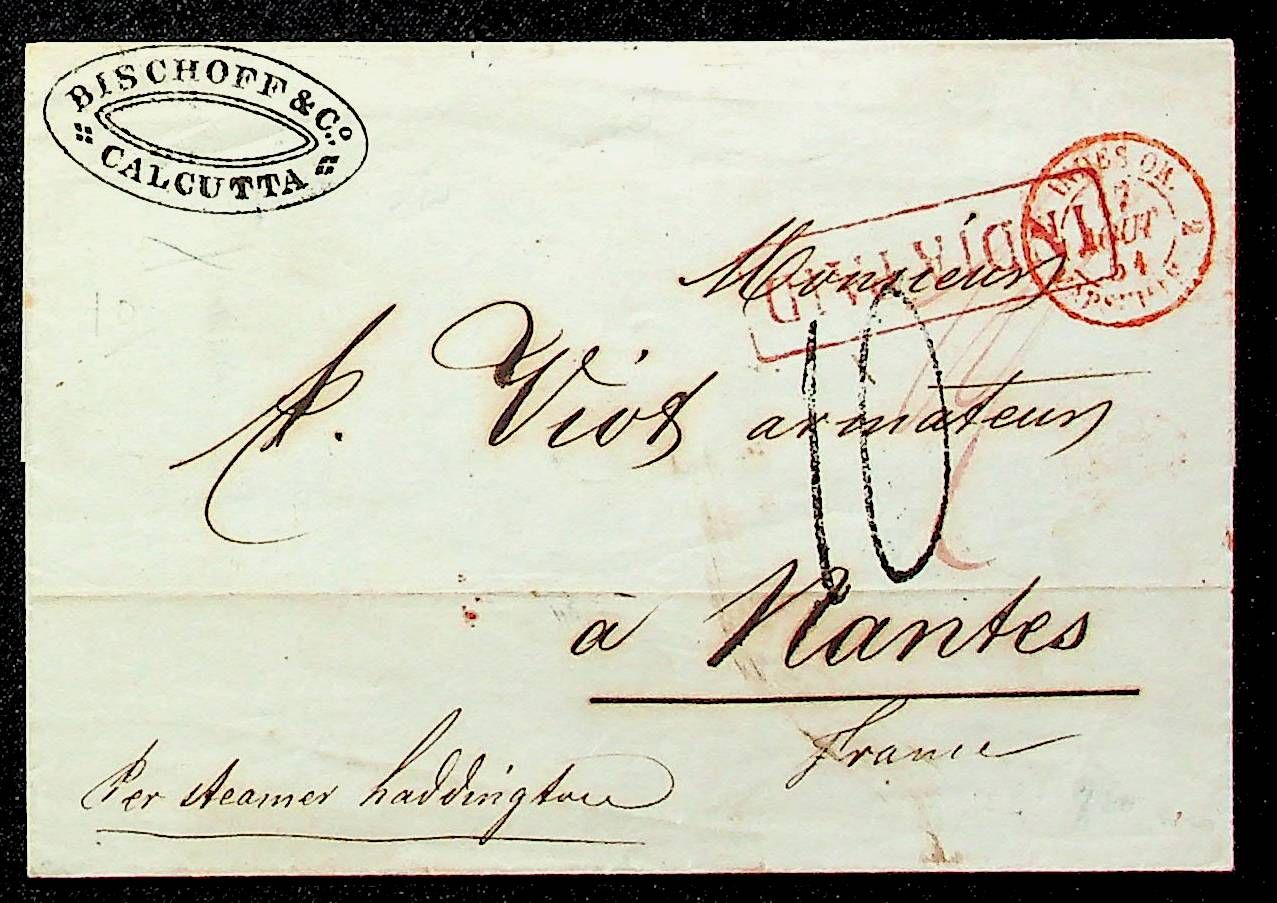 BISCHOFF & Co.
CALCUTTA
INDES OR.
7
AOUT
54
MARSEILLE
2
INDIA PAID
Monsieur
Viot armateur
10
à Nantes
France
Per steamer haddington